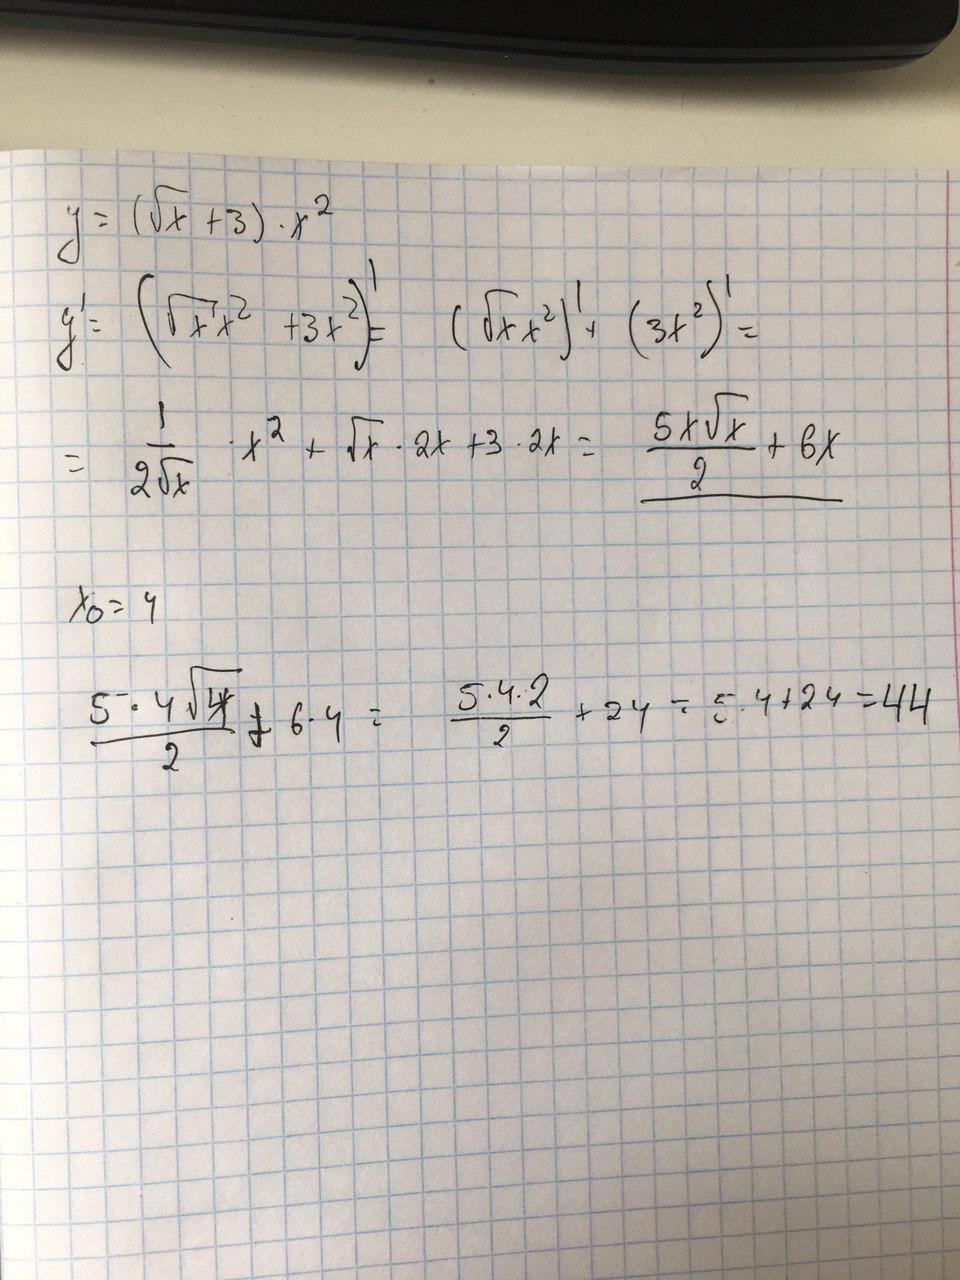 y = (√x + 3) · x²
y' = (√x x² + 3x²)' = (√x x²)' + (3x²)' =
= 1/(2√x) · x² + √x · 2x + 3 · 2x = 5x√x/2 + 6x
x₀ = 4
5 · 4√4/2 + 6 · 4 = 5·4·2/2 + 24 = 5·4+24 = 44